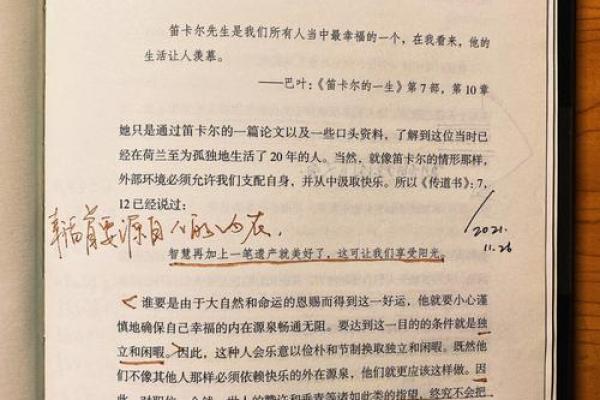 笛卡尔先生是我们所有人当中最幸福的一个，在我看来，他的
生活让人羡慕。
——巴叶：《笛卡尔的一生》第7部，第10章
她只是通过笛卡尔的一篇论文以及一些口头资料，了解到这位当时已
经在荷兰至为孤独地生活了20年的人。当然，就像笛卡尔的情形那样，
外部环境必须允许我们支配自身，并从中汲取快乐。所以《传道书》：7，
12已经说过：
幸福首要源自人的内在，
2021.
11.26
智慧再加上一笔遗产就美好了，这可让我们享受阳光。
谁要是由于大自然和命运的恩赐而得到这一好运，他就要小心谨
慎地确保自己幸福的内在源泉畅通无阻。要达到这一目的的条件就是独
立和闲暇。因此，这种人会乐意以俭朴和节制换取独立和闲暇。既然他
们不像其他人那样必须依赖快乐的外在源泉，他们就更应该这样做。因
此，对职位、金钱、世人的赞许和垂青等诸如此类的指望，终究不会把